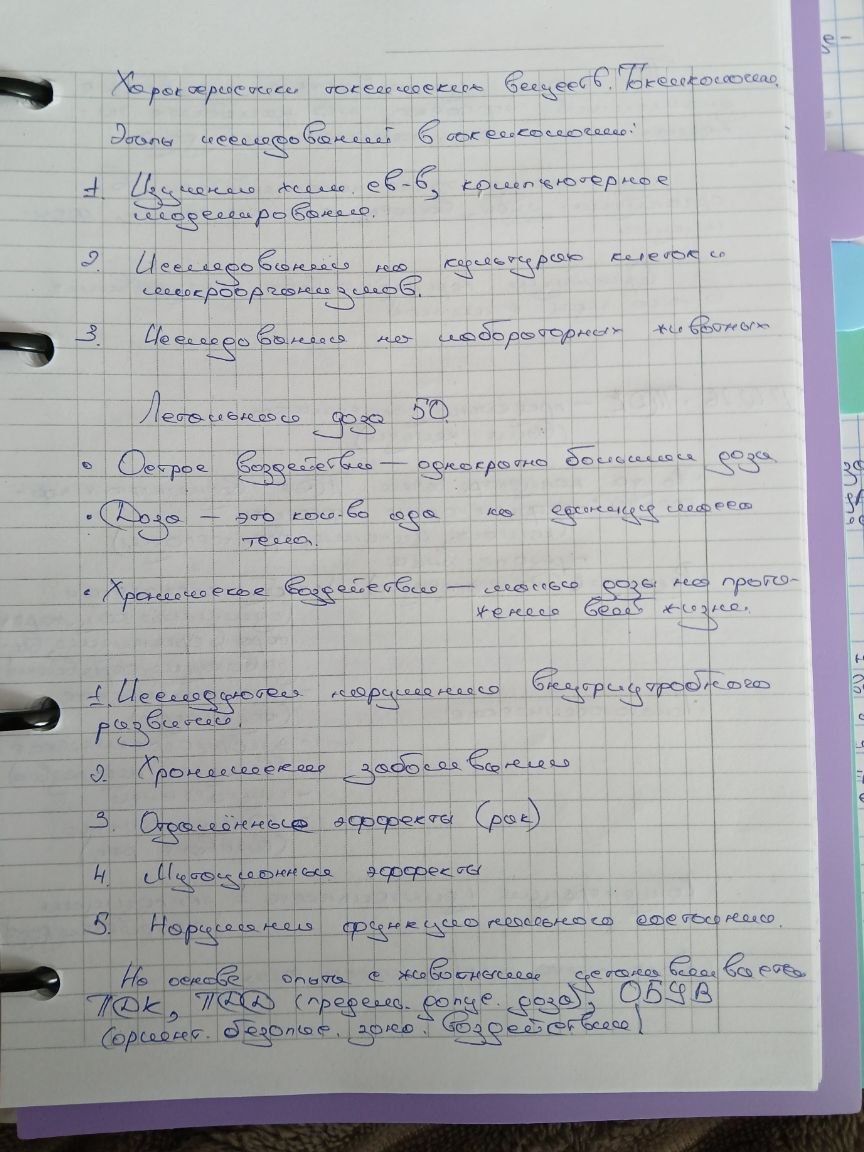 Характеристики токсических веществ. Токсикология.
Этапы исследований в токсикологии:
1. Изучение хим. св-в, компьютерное
моделирование.
2. Исследования на культурах клеток и
микроорганизмов.
3. Исследования на лабораторных животных
Летальная доза 50.
• Острое воздействие — однократно большая доза
• Доза — это кол-во яда на единицу массы
тела.
• Хроническое воздействие — малые дозы на протя-
жении всей жизни.
1. Исследуются нарушения внутриутробного
развития.
2. Хронические заболевания
3. Отдалённые эффекты (рак)
4. Мутационные эффекты
5. Нарушения функционального состояния.
На основе опыта с животными устанавливаются
ПДК, ПДД (предел. допус. доза), ОБУВ
(ориент. безопас. воздействия)